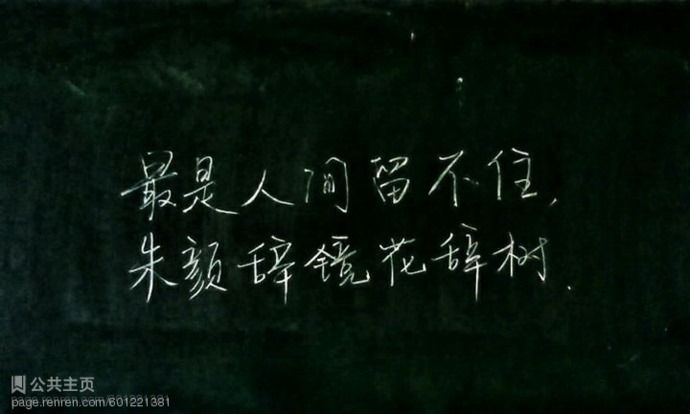 最是人间留不住,
朱颜辞镜花辞树.
公共主页
page.renren.com/601221381